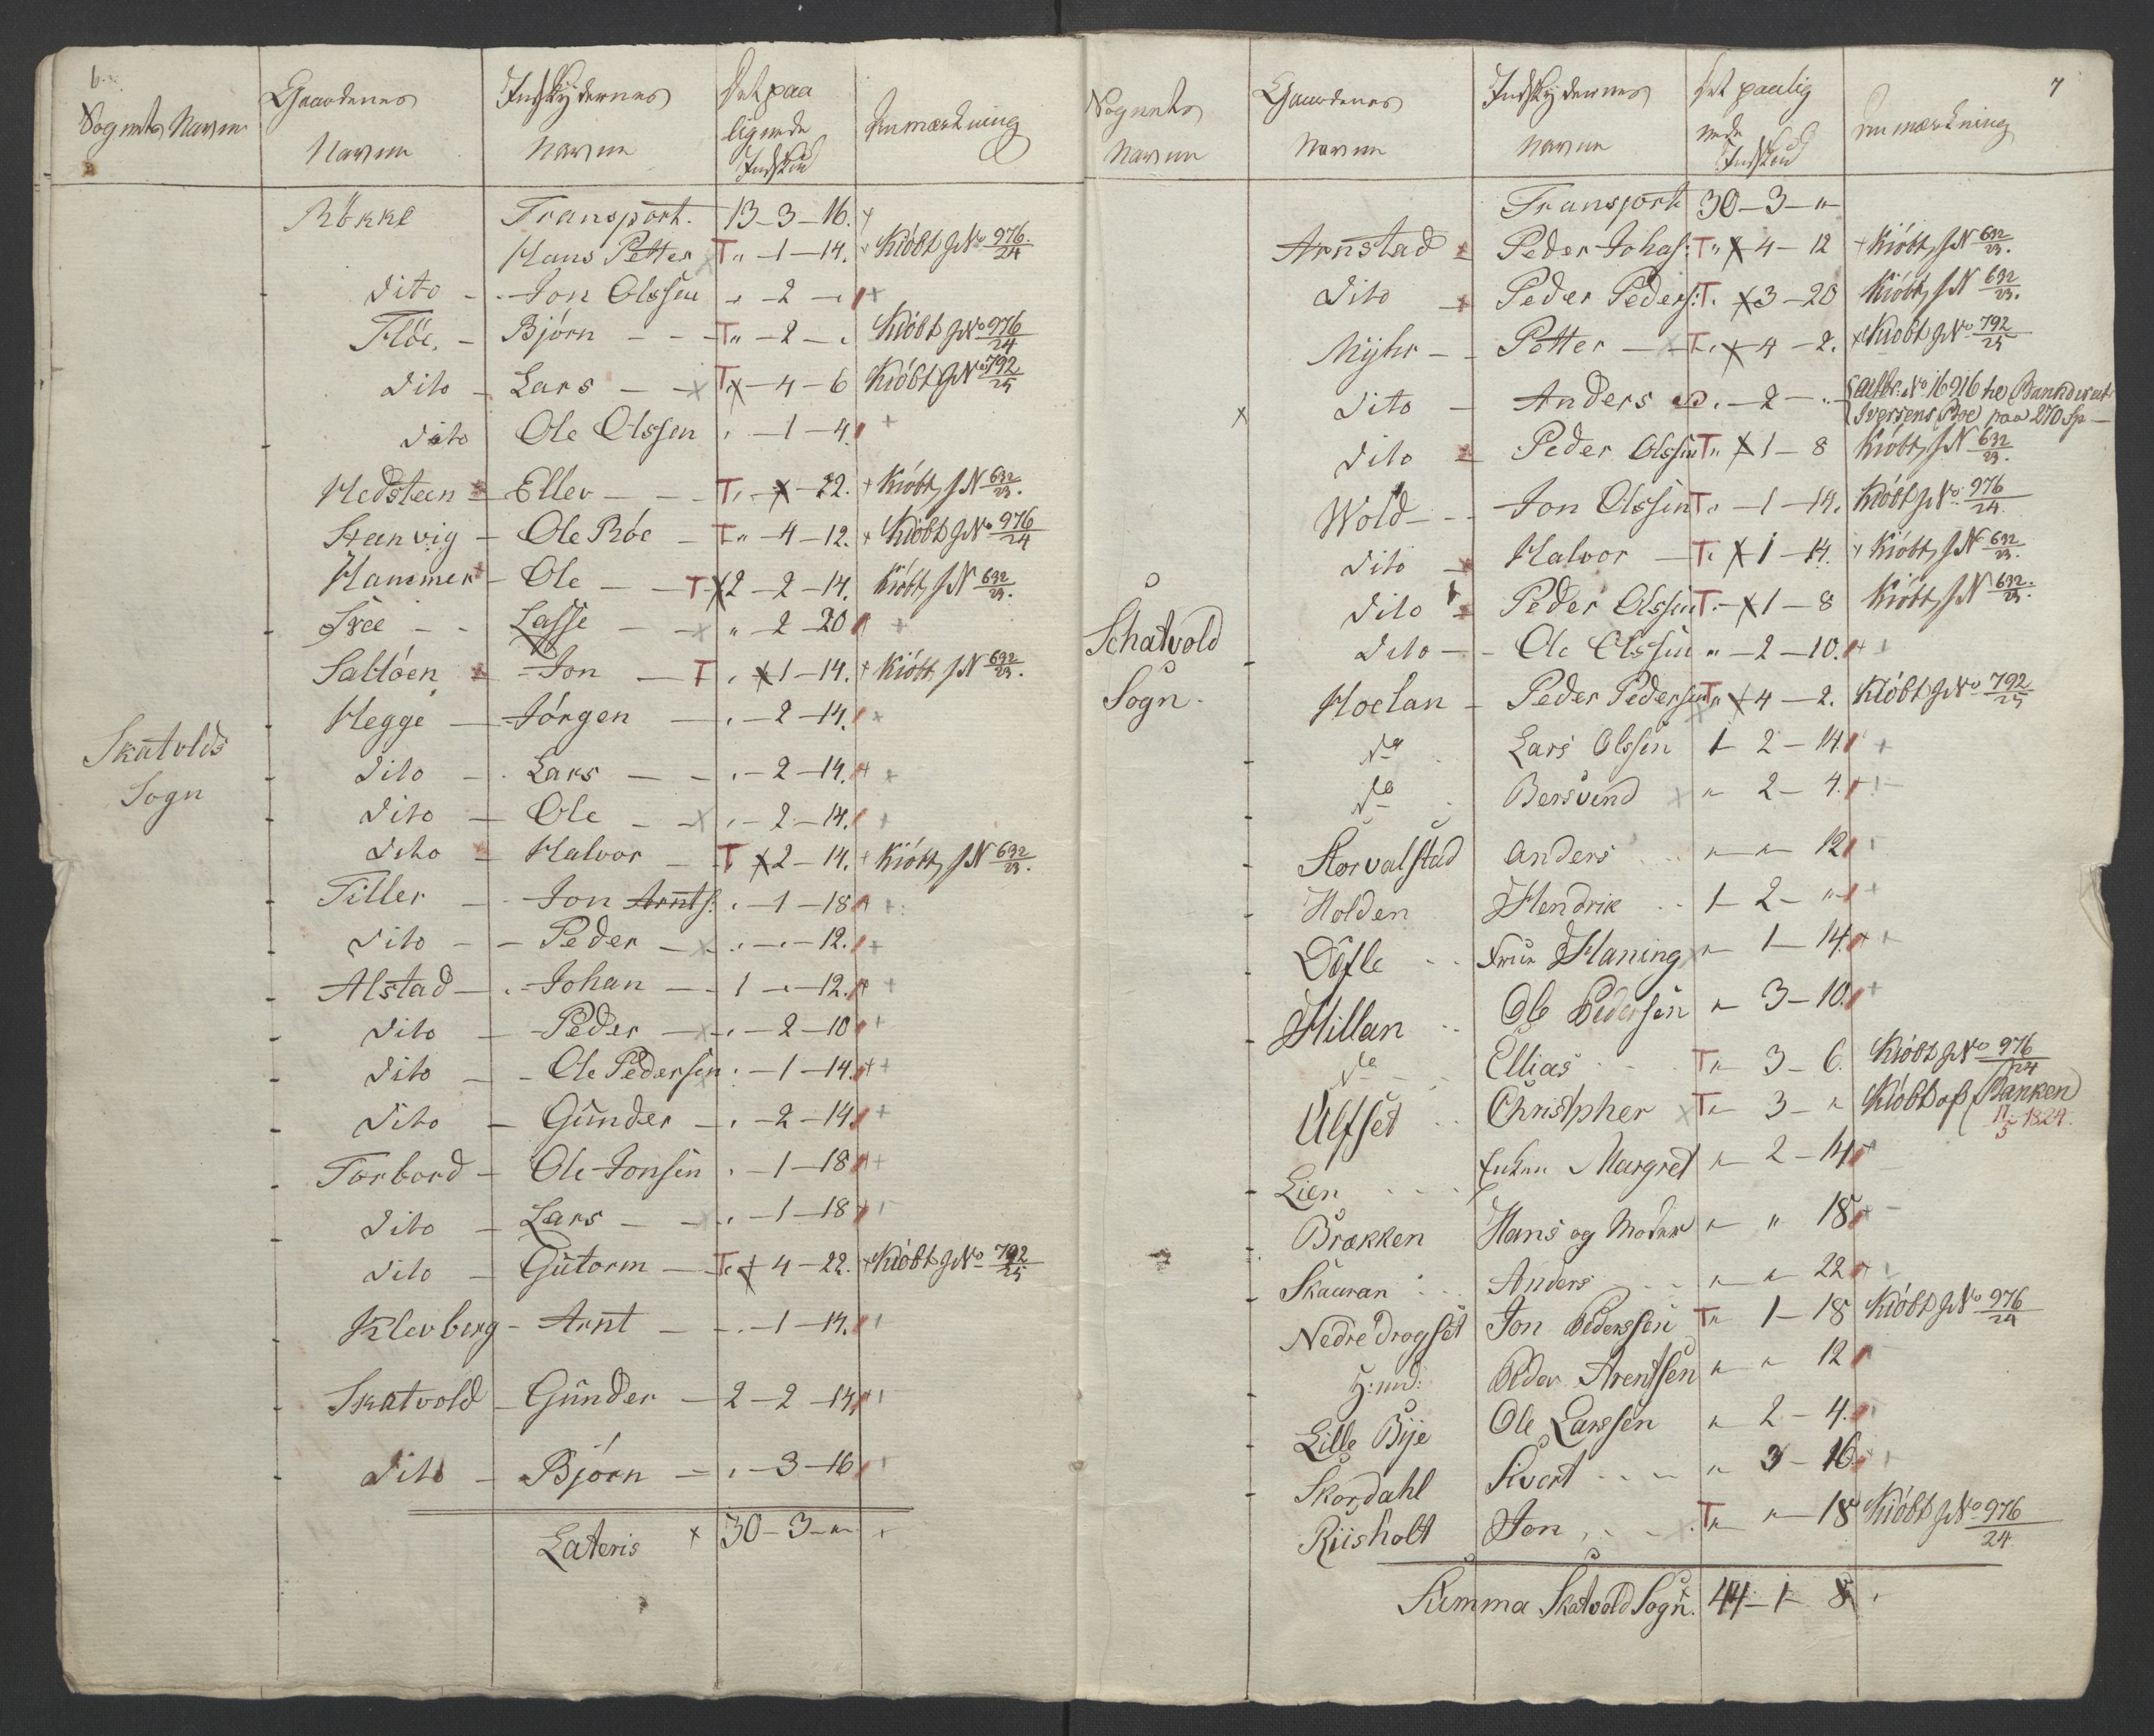 6.
Sognets Navne
Gaardenes Navne
Indskydernes Navne
Det paa liggende Indskud
Anmærkning
Transport. 13-3-16.
Røkke Hans Petter T " -1-14. Kiöbt J No 976/24
Dito - Jon Olssen " -2-"
Flöe. - Björn - - T " -2-" Kiöbt J No 976/24
Dito - Lars - - T " -4-6 Kiöbt J No 792/25
Dito Ole Olssen " -1-4.
Hedsteen - Ellev - - T " - " -22. Kiöbt J N 632/23.
Steenvig - Ole Röe - T " -4-12. Kiöbt J No 976/24
Hammer - Ole - T 2-2-14. Kiöbt J N 632/23.
Svee - - Lasse - " -2-20
Saltöen - Jon - T " 1-14. Kiöbt J N 632/23.
Hegge - Jörgen - " -2-14.
Skatvolds Sogn
Dito - Lars - - " -2-14.
Dito - Ole - " -2-14.
Dito - Halvor - T 2-14. Kiöbt J N 632/23.
Tiller - Jon Arnts: " -1-18
Dito - Peder - " - " -12.
Alstad - Johan - 1 - " -12.
Dito - Peder - " -2-10
Dito - Ole Pedersen " -1-14.
Dito - Gunder - " -2-14.
Forbord - Ole Jonsen " -1-18
Dito - Lars - " -1-18
Dito - Gutorm - T " 4-22. Kiöbt J No 792/25
Klevberg - Arnt - " -1-14.
Skatvold - Gunder - 2-2-14.
Dito - Björn - " -3-16
Lateris 30-3-"
7
Sognets Navne
Gaardenes Navne
Indskydernes Navne
Det paalig nede Indskud
Anmærkning
Transport 30-3-"
Arnstad Peder Johas: T " 4-12 Kiöbt J N 632/23.
Dito Peder Peders: T. 3-20 Kiöbt J N 632/23.
Myhr - - Petter - T " 4-2. Kiöbt J No 792/25
Dito - Anders " -2-" No 16916 paa 270 Sp
Dito Peder Olssen T " 1-8 Kiöbt J N 632/23.
Wold - - Jon Olssen T " -1-14. Kiöbt J No 976/24.
Dito Halvor - T " 1-14. Kiöbt J N 632/23.
Dito Peder Olssen T " 1-8 Kiöbt J N 632/23.
Schatvold Sogn.
Dito - Ole Olssen " -2-10.
Hoelan - Peder Pedersen T " 4-2. Kiöbt J No 792/25
Do Lars Olssen 1-2-14
Do Bersvend " 2-4.
Storvalstad Anders " - " 12
Holden Hendrik 1-2-"
Döfle Frue Haning " 1-14.
Hillan Ole Pedersen " 3-10.
Do Ellias T " 3-6. Kiöbt J No 976/24
Ulfset Christpher T " 3-" Kiöbt af Banken 11/5 1824.
Lien Enken Margret " 2-14
Brækken Hans og Moder " " 18
Skauran Anders " " 22
Nedre drogset Jon Pederssen T " 1-18 Kiöbt J No 976/24
Peder Arentsen " " 12
Lille Bye Ole Larssen " 2-4.
Skordahl Sivert " 3-16
Riisholt Jon T " " -18 Kiöbt J No 976/24
Summa Skatvold Sogn. 44-1-8